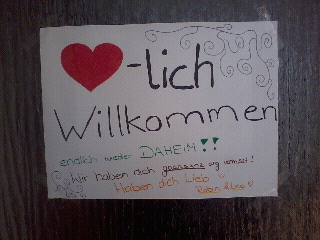 ❤-lich
Willkommen
endlich wieder DAHEIM!!
Wir haben dich arg vermisst!
Haben dich Lieb
Robin &